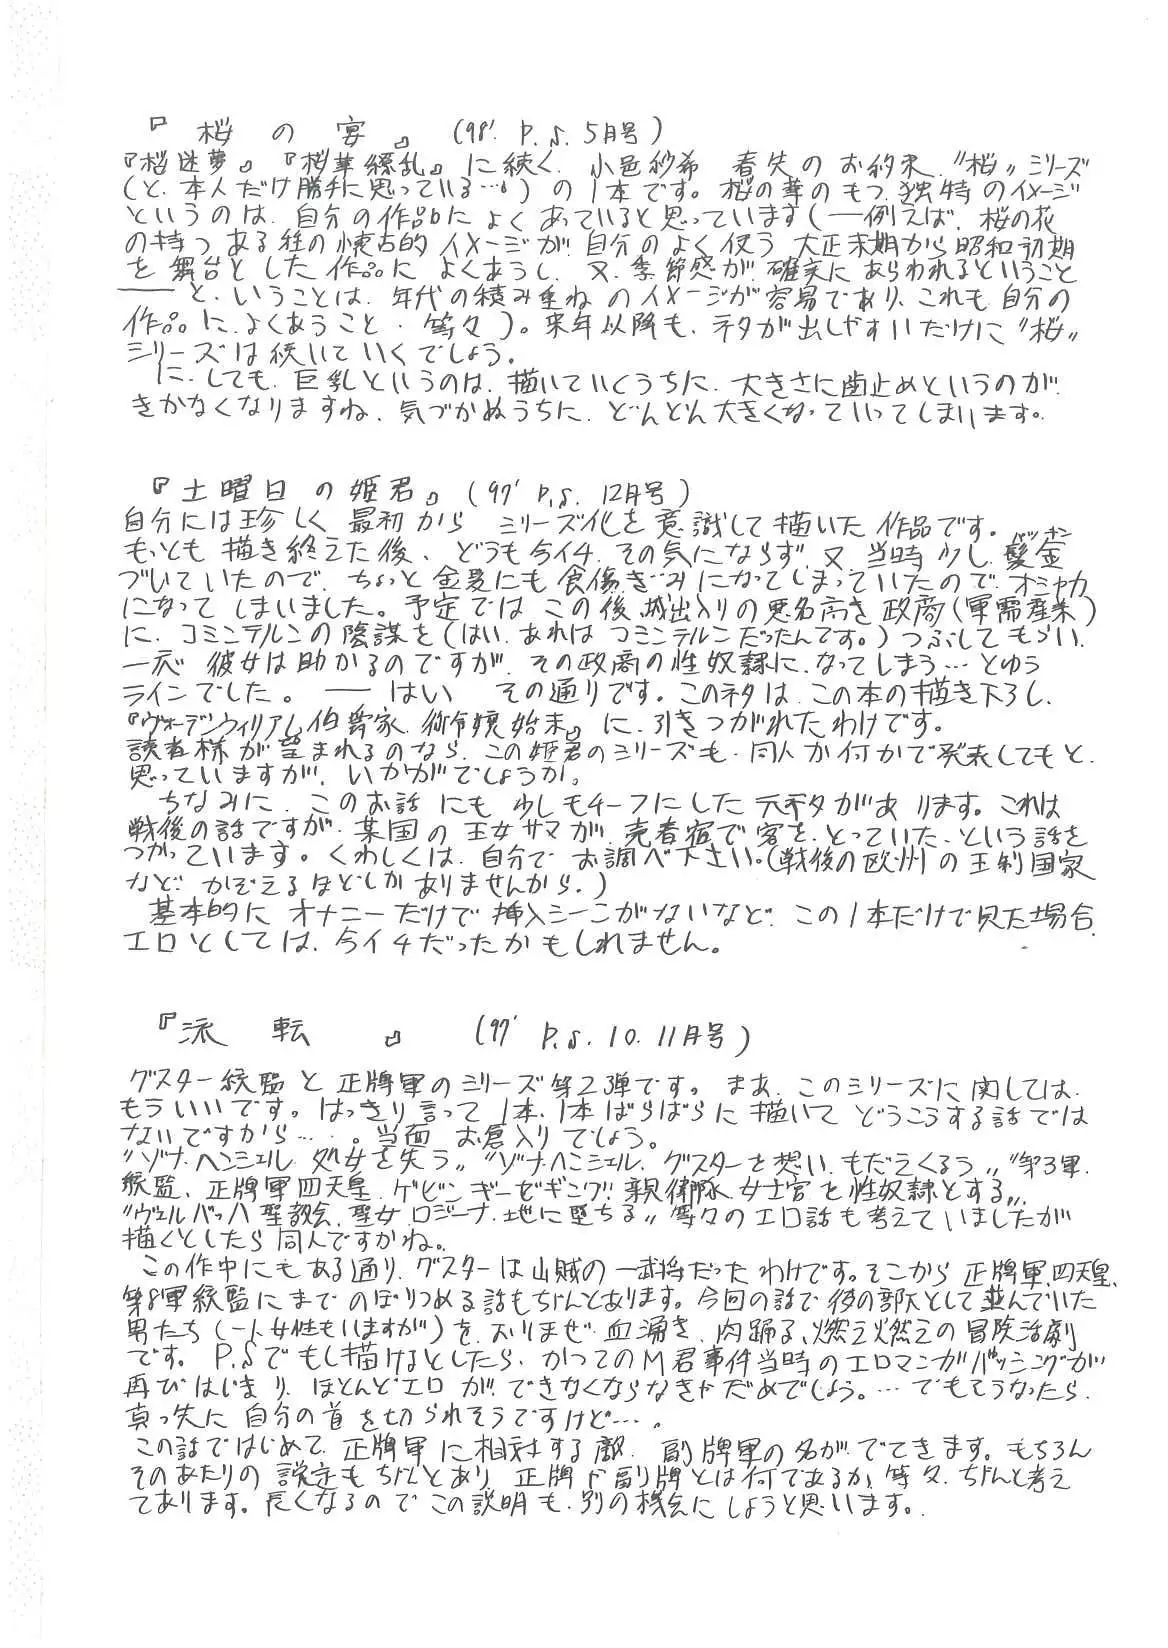 『桜の宴』 (98' P.S. 5月号)
『桜迷夢』『桜華繚乱』に続く、小邑紗希 春先のお約束、〝桜〟シリーズ
(と、本人だけ勝手に思っている…。)の1本です。桜の華のもつ、独特のイメージ
というのは、自分の作品によくあっていると思っています(――例えば、桜の花
の持つある種の懐古的イメージが、自分のよく使う大正末期から昭和初期
を舞台とした作品によくあうし、又、季節感が確実にあらわれるということ
――と、いうことは、年代の積み重ねのイメージが容易であり、これも自分の
作品に、よくあうこと、等々)。来年以降も、ネタが出しやすいだけに〝桜〟
シリーズは続いていくでしょう。
に、しても、巨乳というのは、描いていくうちに、大きさに歯止めというのが、
きかなくなりますね、気づかぬうちに、どんどん大きくなっていってしまいます。
『土曜日の姫君』(97' P.S. 12月号)
自分には珍しく最初からシリーズ化を意識して描いた作品です。
もっとも描き終えた後、どうも今イチ、その気にならず、又、当時少し、髪金
パツキン
づいていたので、ちょっと金髪にも食傷ぎみになってしまっていたので、オシャカ
になってしまいました。予定ではこの後、城出入りの悪名高き政商(軍需産業)
に、コミンテルンの陰謀を(はい、あれはコミンテルンだったんです。)つぶしてもらい、
一応彼女は助かるのですが、その政商の性奴隷に、なってしまう…とゆう
ラインでした。――はい その通りです。このネタは、この本の描き下ろし、
『ヴォーデンウィリアム伯爵家、御令嬢始末』に、引きつがれたわけです。
読者様が望まれるのなら、この姫君のシリーズも、同人か何かで発表してもと、
思っていますが、いかがでしょうか。
ちなみに、このお話にも少しモチーフにした元ネタがあります。これは
戦後の話ですが、某国の王女サマが、売春宿で客を、とっていた、という話を
つかっています。くわしくは、自分でお調べ下さい。(戦後の欧州の王制国家
など、かぞえるほどしかありませんから。)
基本的にオナニーだけで挿入シーンがないなど、この1本だけで見た場合、
エロとしては、今イチだったかもしれません。
『流転』 (97' P.S. 10. 11月号)
グスター統監と正牌軍のシリーズ第2弾です。まあ、このシリーズに関しては、
もういいです。はっきり言って1本、1本ばらばらに描いてどうこうする話では
ないですから…。当面お倉入りでしょう。
〝ゾナ・ヘンシェル、処女を失う〟〝ゾナ・ヘンシェル、グスターを想い、もだえくるう〟〝第3軍
統監、正牌軍四天皇、ゲビンギーゼギング!!親衛隊女士官を性奴隷とする〟
〝ヴェルバッハ聖教会、聖女ロジーナ、地に堕ちる〟等々のエロ話も考えていましたが
描くとしたら同人ですかね。
この作中にもある通り、グスターは山賊の一武将だったわけです。そこから正牌軍、四天皇、
第8軍統監にまでのぼりつめる話もちゃんとあります。今回の話で後の部下として並んでいた
男たち(一人女性もいますが)を、おりまぜ、血湧き、肉踊る、燃え燃えの冒険活劇
です。P.Sでもし描けるとしたら、かつてのM君事件当時のエロマンガバッシングが
再びはじまり、ほとんどエロが、できなくならなきゃだめでしょう。…でもそうなったら、
真っ先に自分の首を切られそうですけど…。
この話ではじめて、正牌軍に相対する敵、副牌軍の名が、でてきます。もちろん
そのあたりの設定もちゃんとあり、正牌や副牌とは何であるか、等々、ちゃんと考え
てあります。長くなるのでこの説明も、別の機会にしようと思います。